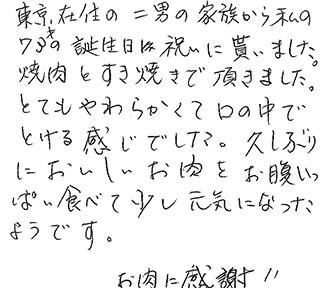 東京在住の二男の家族から私の
73才の誕生日御祝いに貰いました。
焼肉とすき焼きで頂きました。
とてもやわらかくて口の中で
とける感じでした。久しぶり
においしいお肉をお腹いっ
ぱい食べて少し元気になった
ようです。
お肉に感謝!!